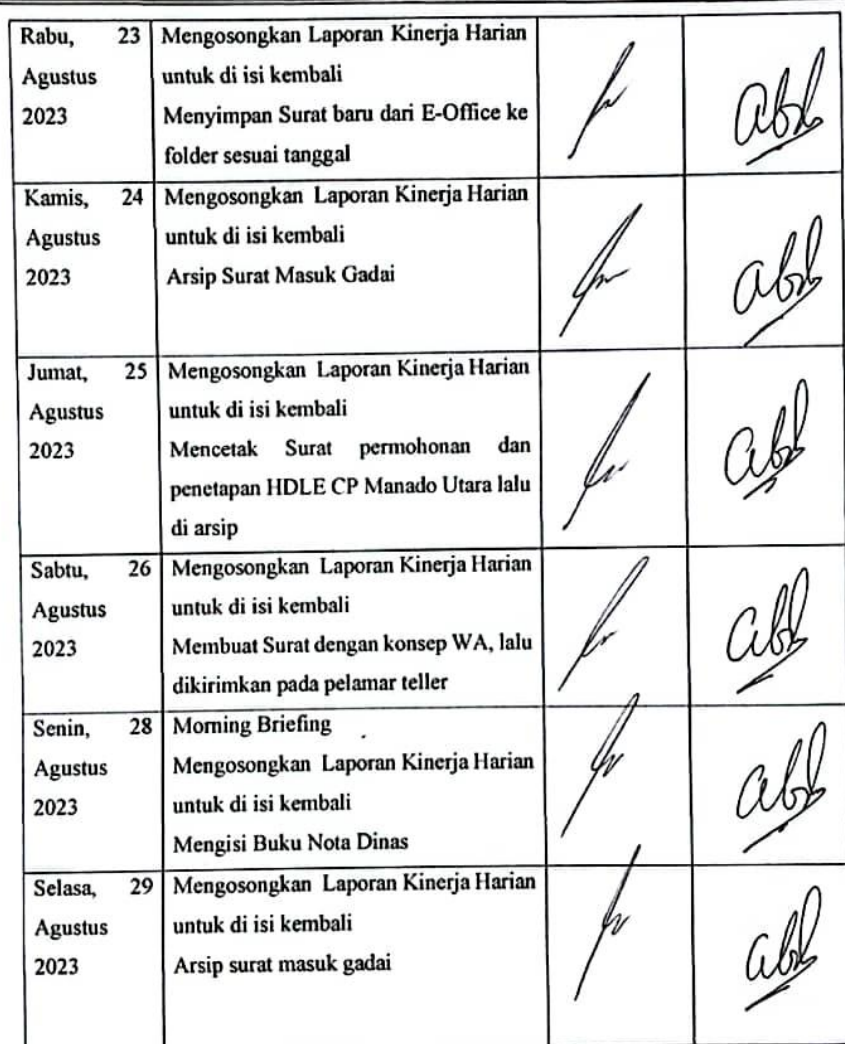 Rabu, 23
Agustus
2023
Mengosongkan Laporan Kinerja Harian
untuk di isi kembali
Menyimpan Surat baru dari E-Office ke
folder sesuai tanggal
Kamis, 24
Agustus
2023
Mengosongkan Laporan Kinerja Harian
untuk di isi kembali
Arsip Surat Masuk Gadai
Jumat, 25
Agustus
2023
Mengosongkan Laporan Kinerja Harian
untuk di isi kembali
Mencetak Surat permohonan dan
penetapan HDLE CP Manado Utara lalu
di arsip
Sabtu, 26
Agustus
2023
Mengosongkan Laporan Kinerja Harian
untuk di isi kembali
Membuat Surat dengan konsep WA, lalu
dikirimkan pada pelamar teller
Senin, 28
Agustus
2023
Morning Briefing
Mengosongkan Laporan Kinerja Harian
untuk di isi kembali
Mengisi Buku Nota Dinas
Selasa, 29
Agustus
2023
Mengosongkan Laporan Kinerja Harian
untuk di isi kembali
Arsip surat masuk gadai